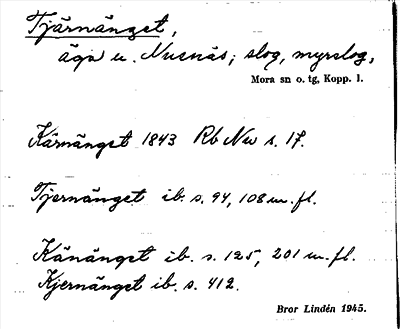 Tjärnänget,
äga u. Nusnäs; slog, myrslog,
Mora sn o. tg, Kopp. l.
Kärnänget 1843 Rb Nu s. 17.
Tjernänget ib. s. 94, 108 m. fl.
Känänget ib. s. 125, 201 m. fl.
Kjernänget ib. s. 412.
Bror Lindén 1945.